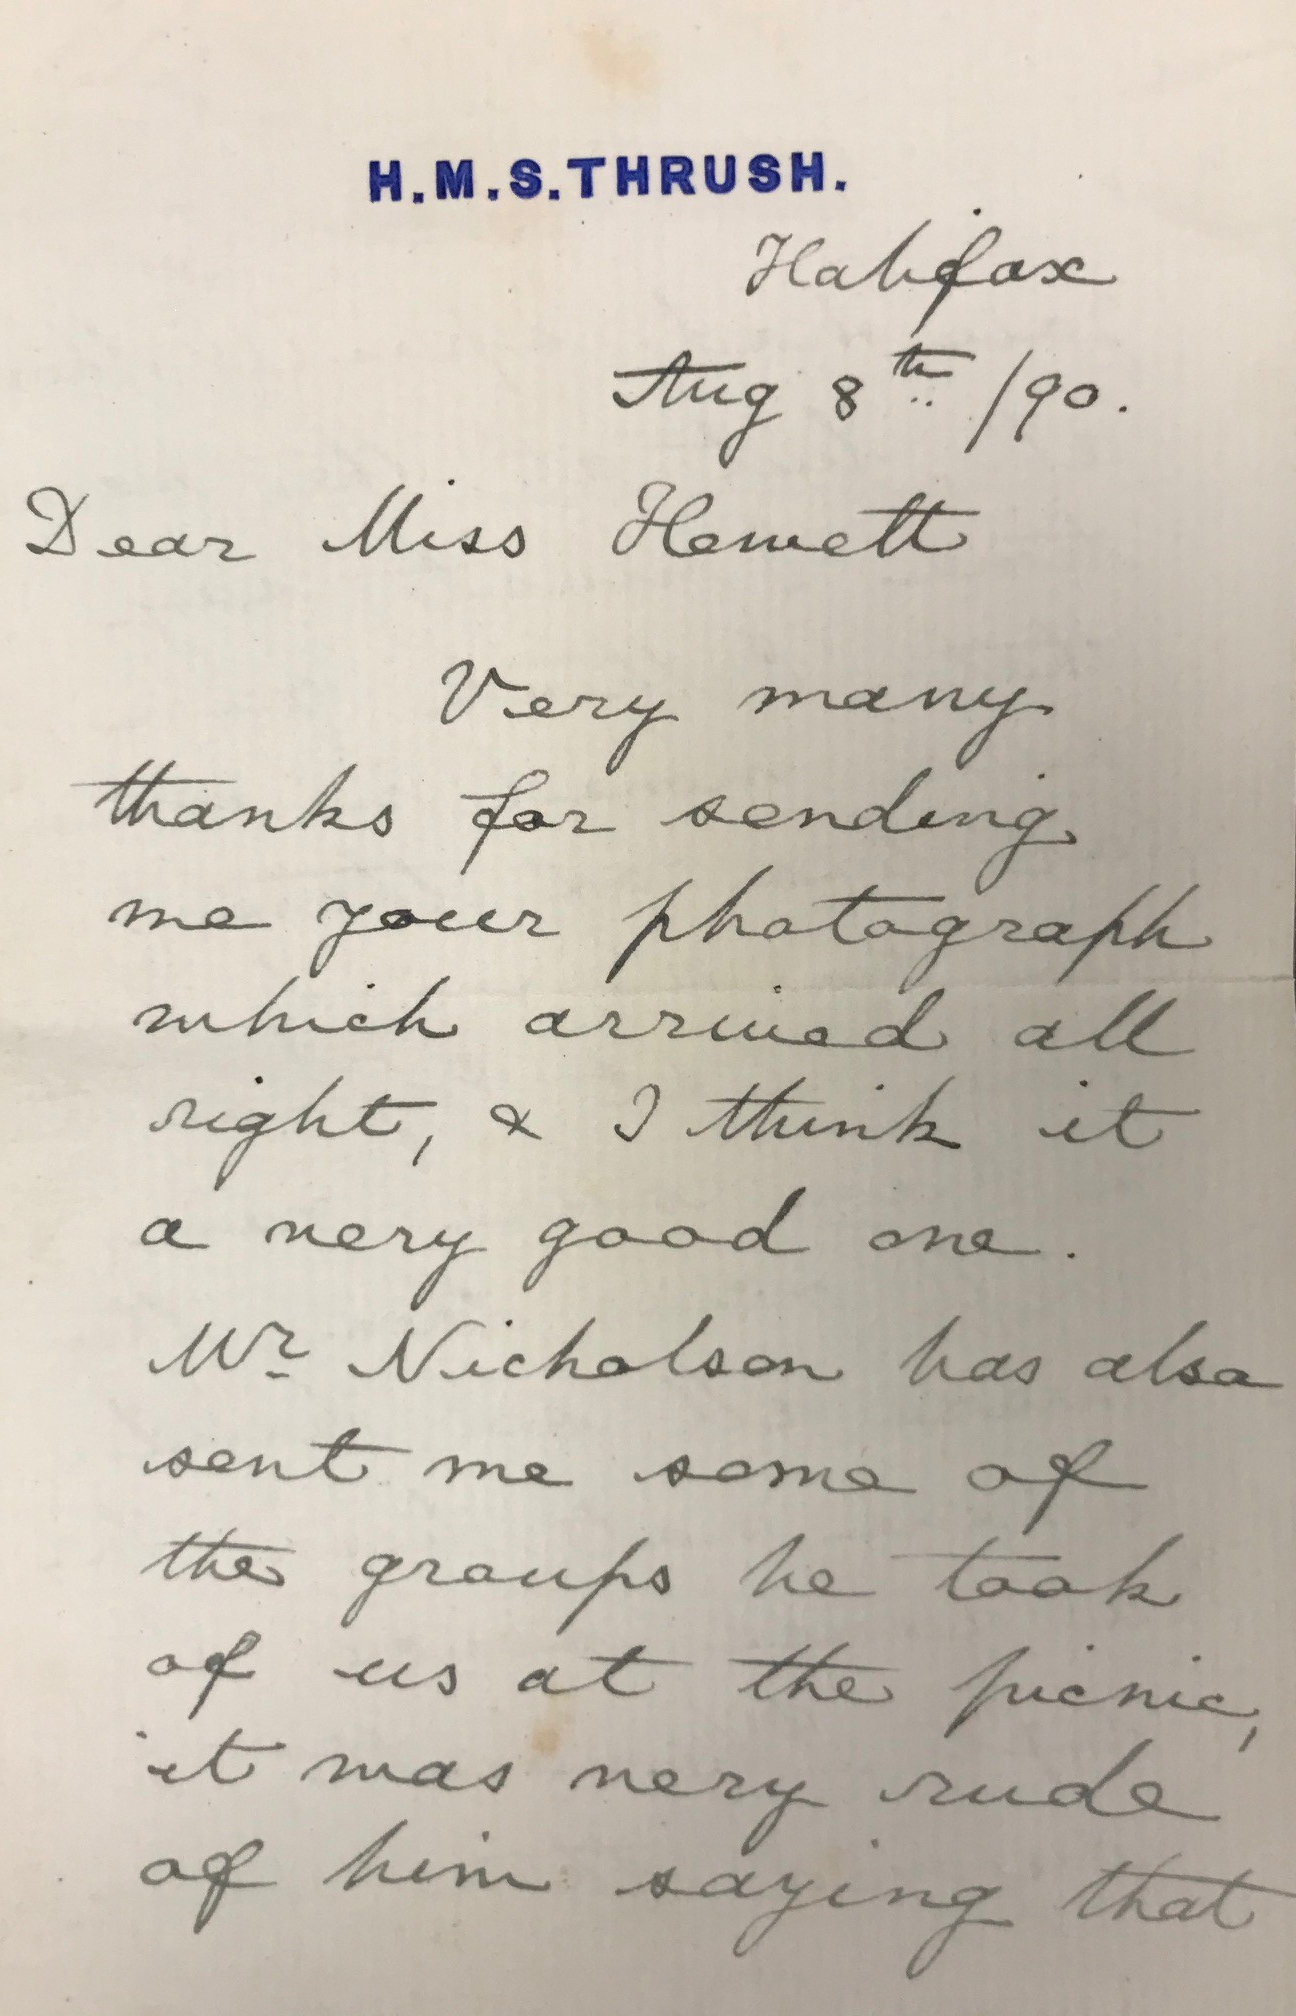 H.M.S.THRUSH.
Halifax
Aug 8th /90.
Dear Miss Hewett
Very many
thanks for sending
me your photograph
which arrived all
right, & I think it
a very good one.
Mr Nicholson has also
sent me some of
the groups he took
of us at the picnic,
it was very rude
of him saying that